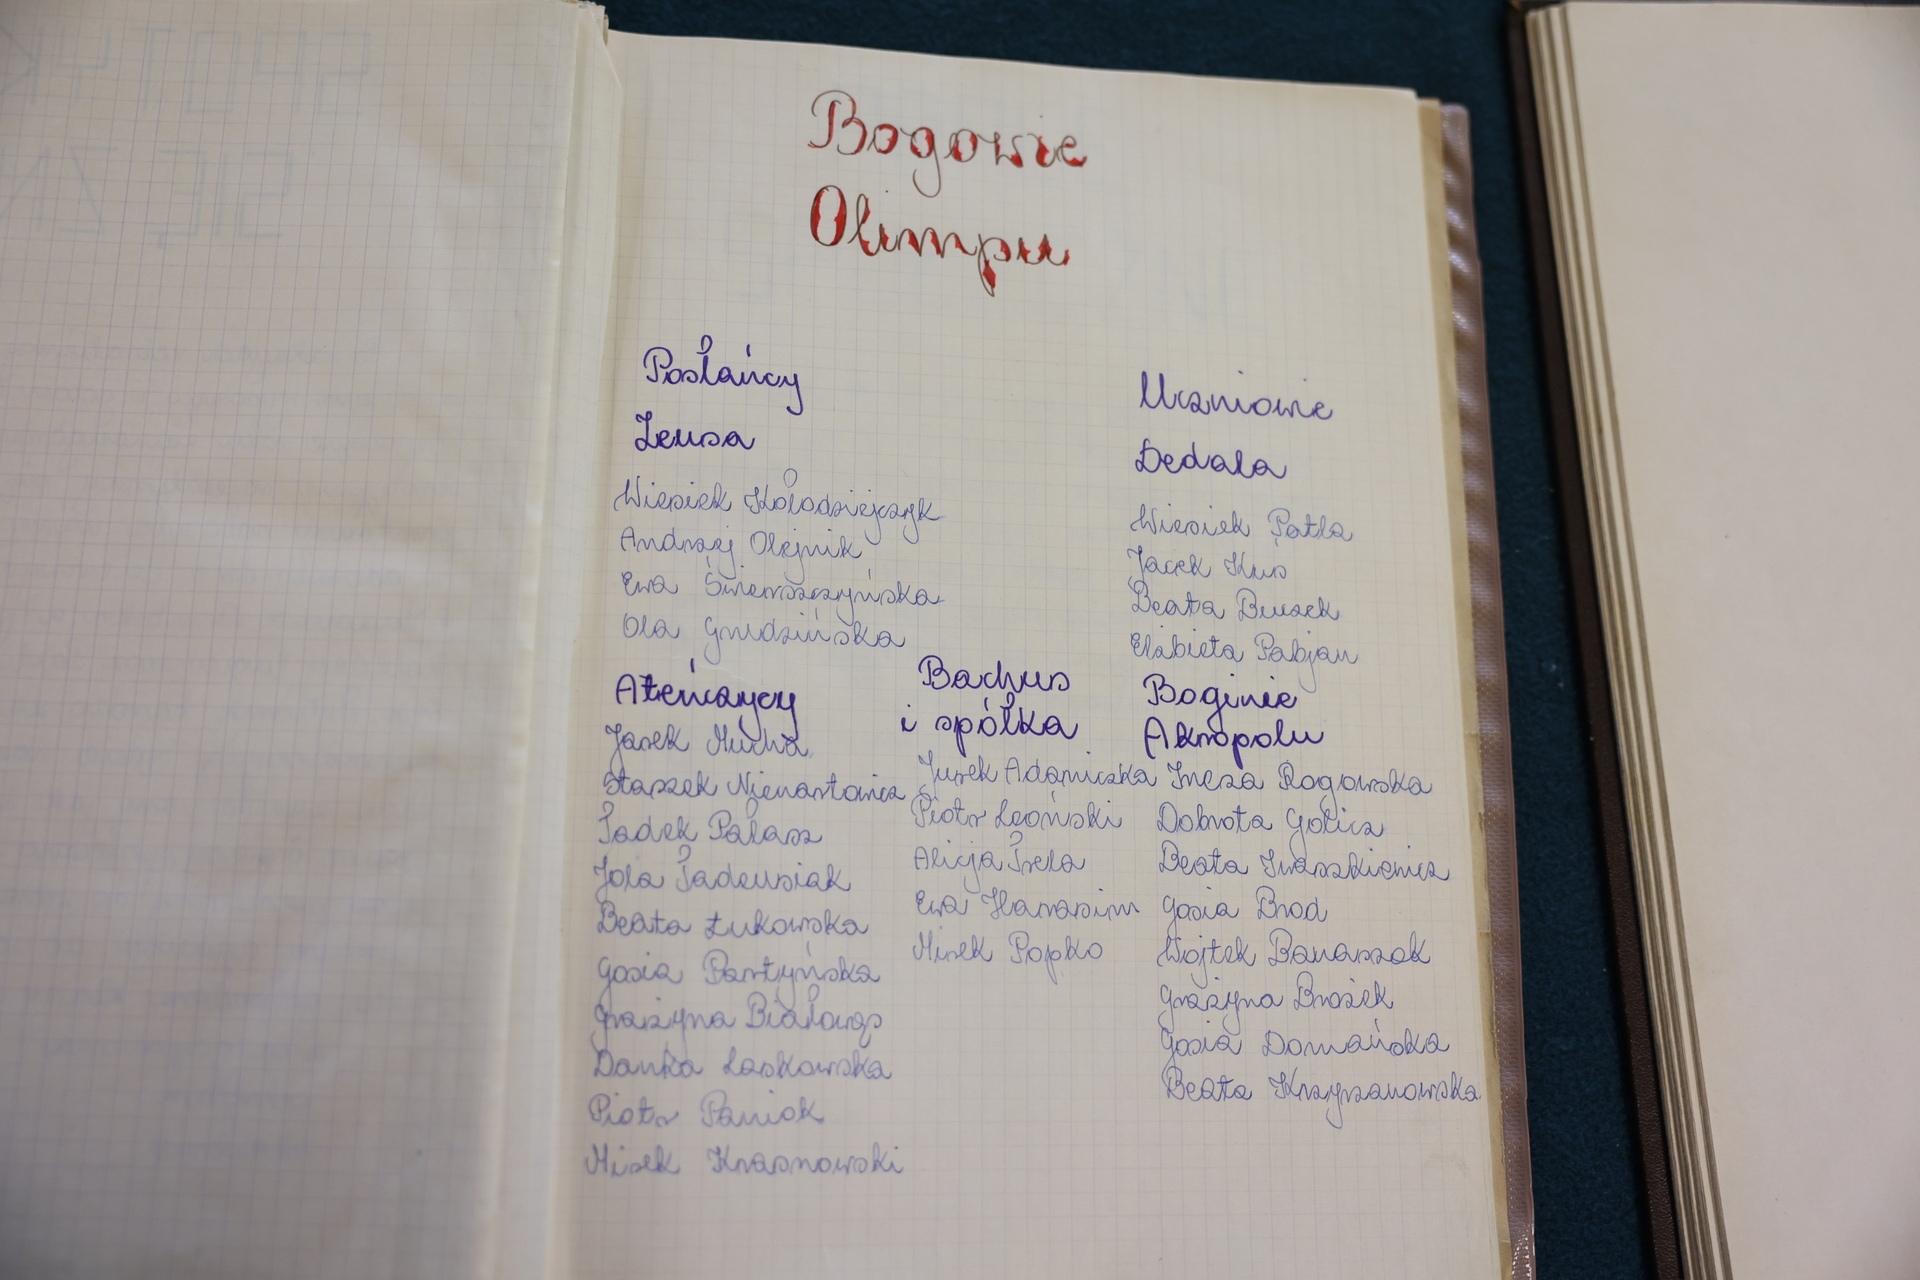 Bogowie
Olimpu
Posłańcy
Zeusa
Wiesiek Kołodziejczyk
Andrzej Olejnik
Ewa Świerszczyńska
Ola Grudzińska
Uczniowie
Dedala
Wiesiek Patla
Jacek Kus
Beata Buszek
Elżbieta Pabjan
Ateńczycy
Jarek Mucha
Staszek Nienartowicz
Tadek Pałasz
Jola Tadeusiak
Beata Łukowska
Gosia Partyńska
Grażyna Białowąs
Danka Laskowska
Piotr Paniok
Mirek Krasnowski
Bachus
i spółka
Jurek Adamiczka
Piotr Leoński
Alicja Trela
Ewa Harasim
Mirek Popko
Boginie
Akropolu
Ineza Rogowska
Dobrota Golicz
Beata Iwaszkiewicz
Gosia Brod
Wojtek Banaszak
Grażyna Brożek
Gosia Domańska
Beata Krzyżanowska